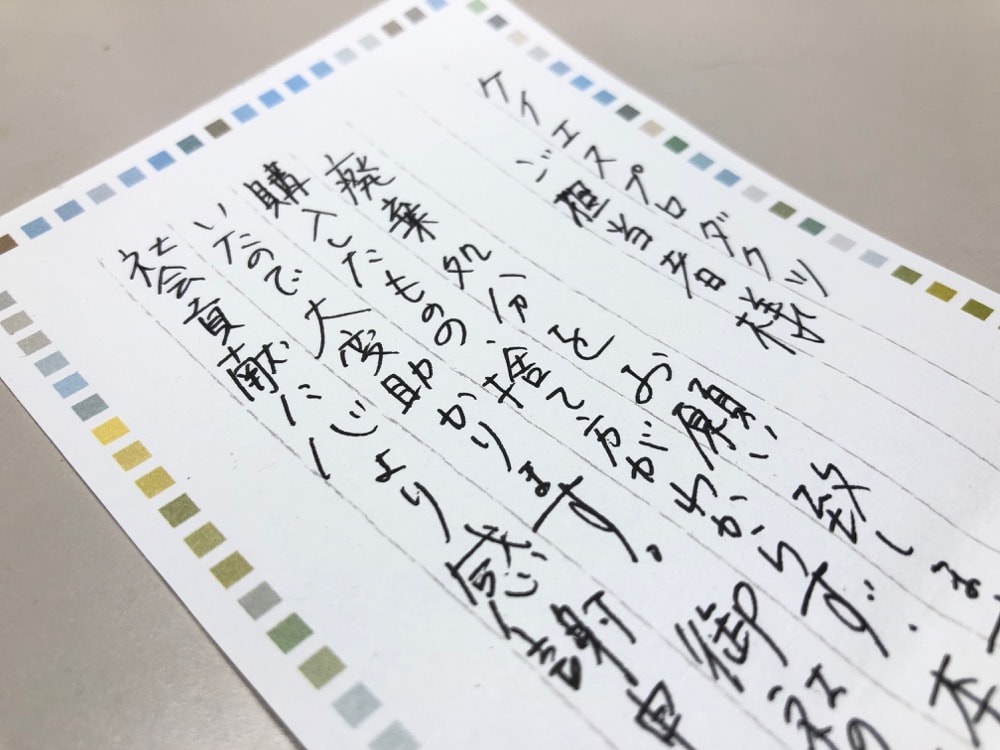 ケイエスプロダクツ
ご担当者様
廃棄処分をお願い致しま
購入したものの捨て方がわからず、本
いたので大変助かります。御社の
社会貢献に心より感謝申